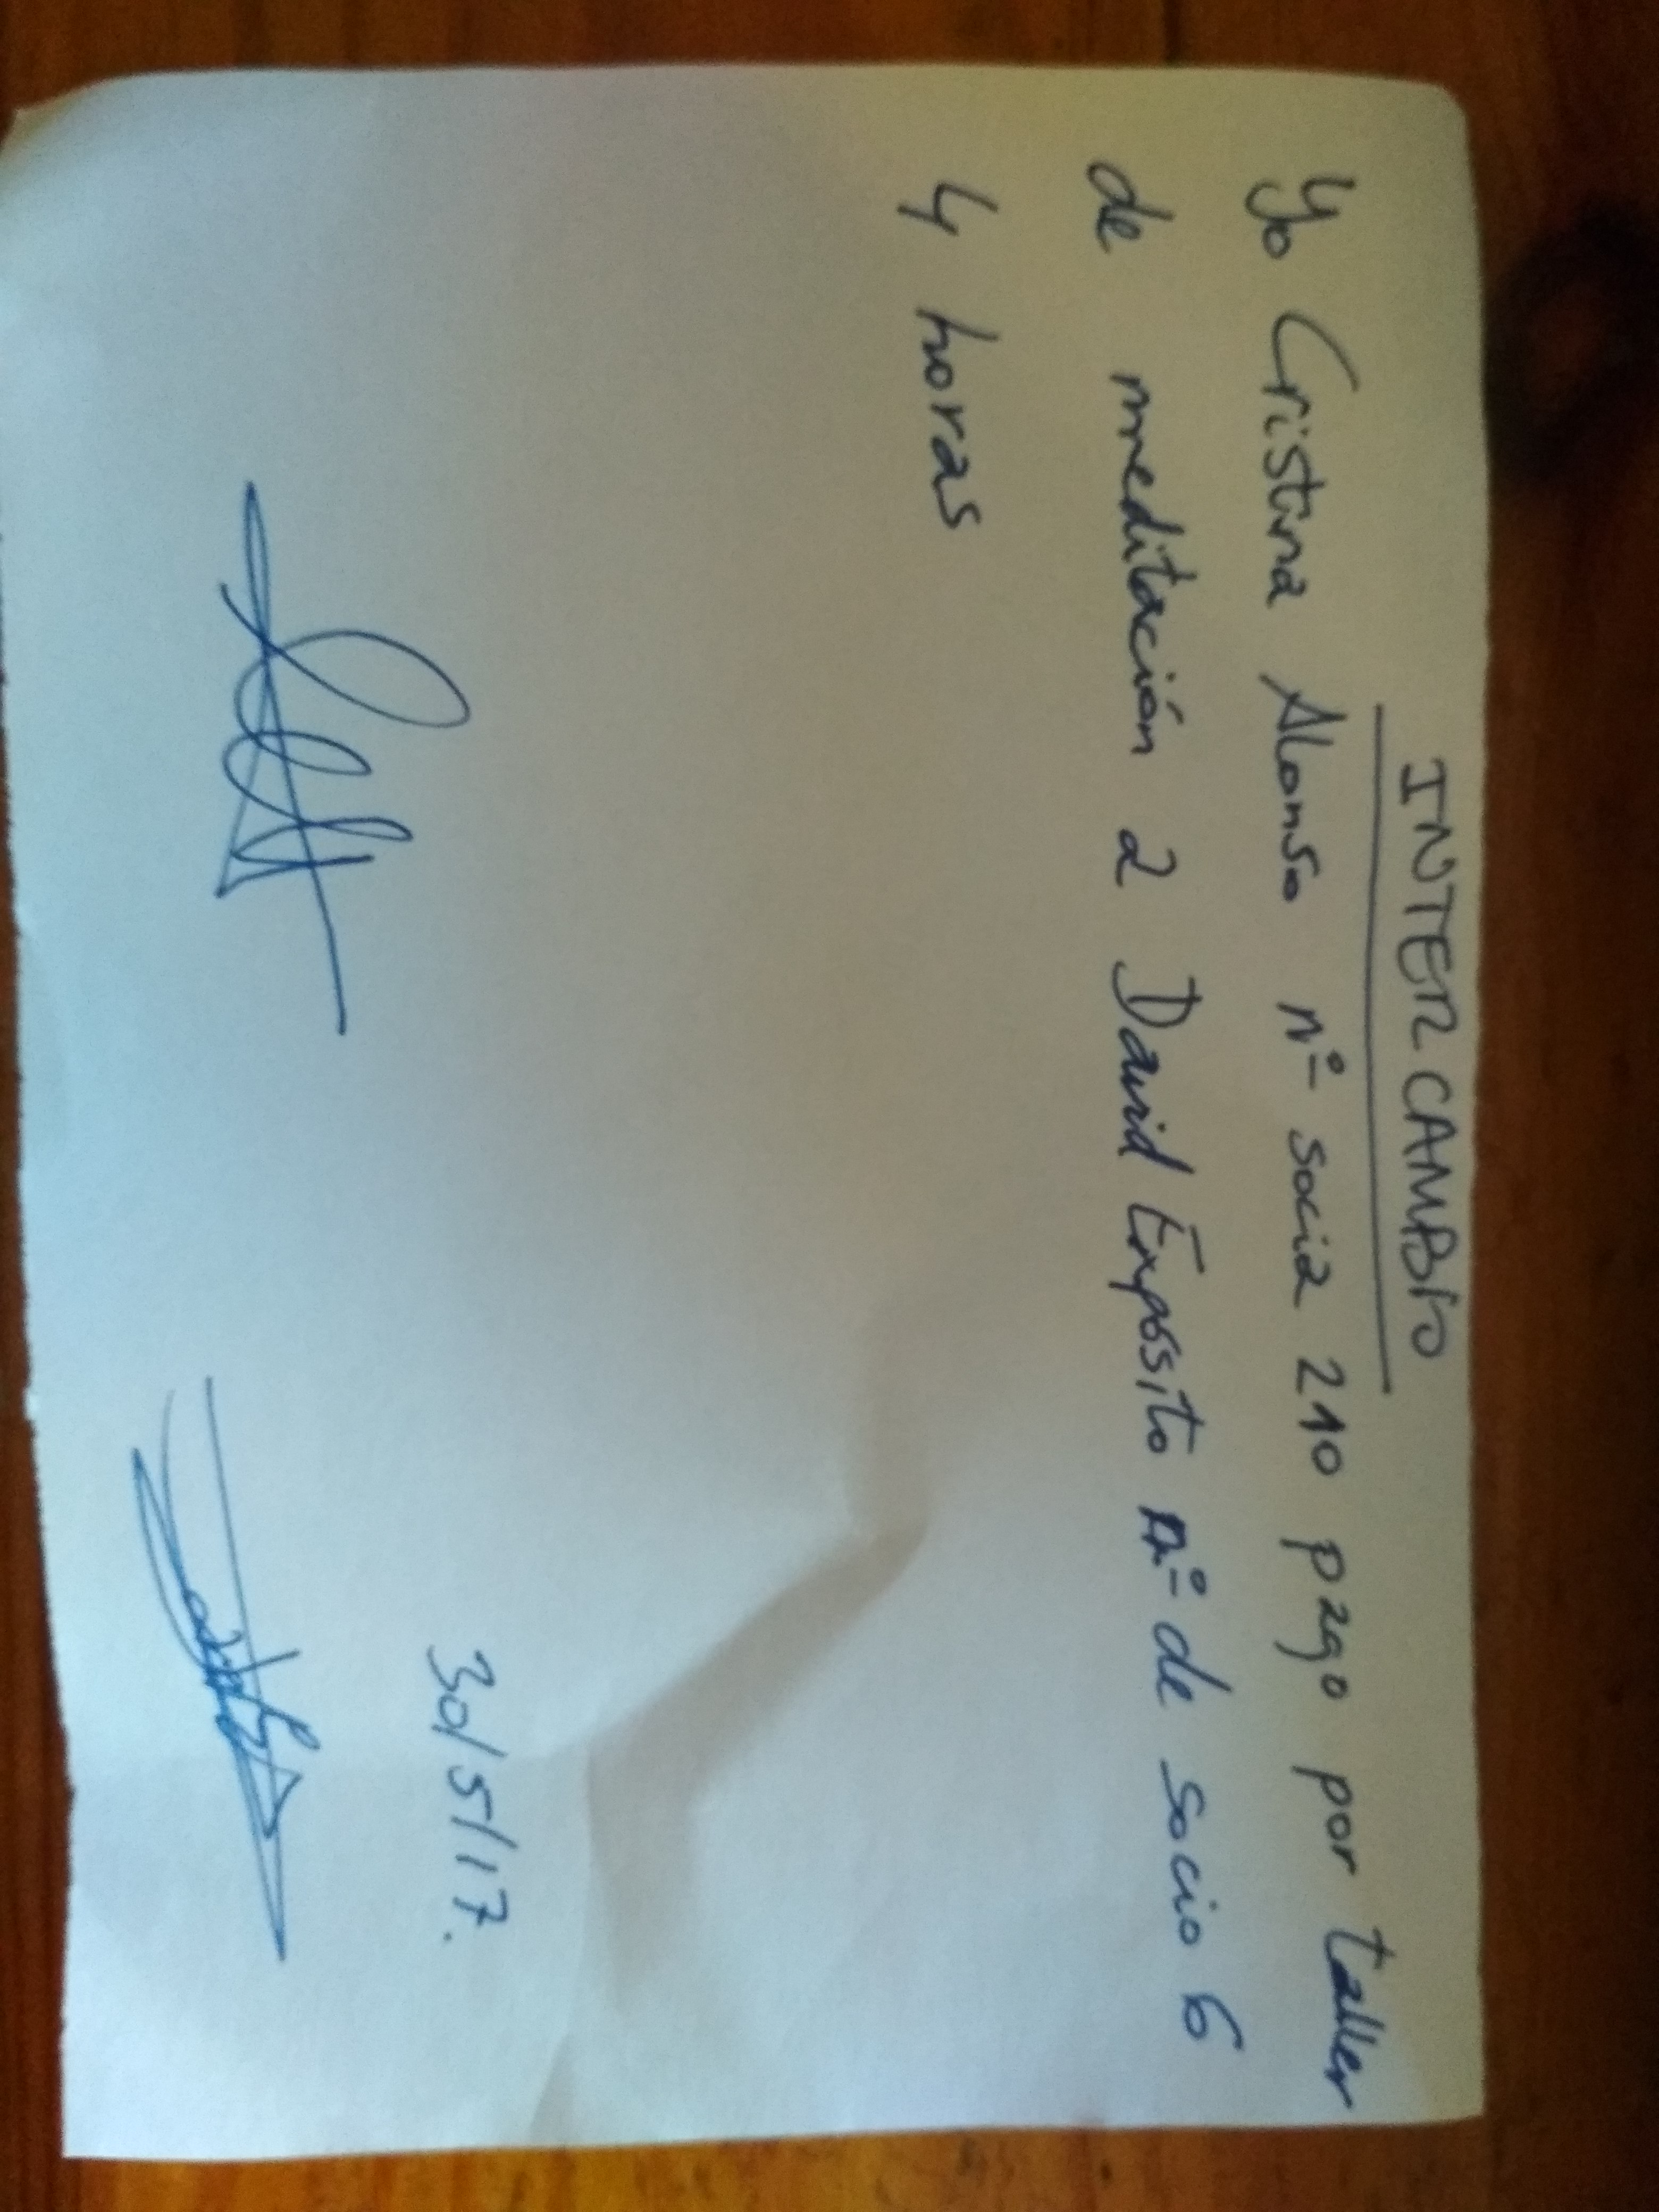 INTERCAMBIO
Yo Cristina Alonso nº socia 210 pago por taller
de meditación a David Expósito nº de socio 6
4 horas
30/5/17.